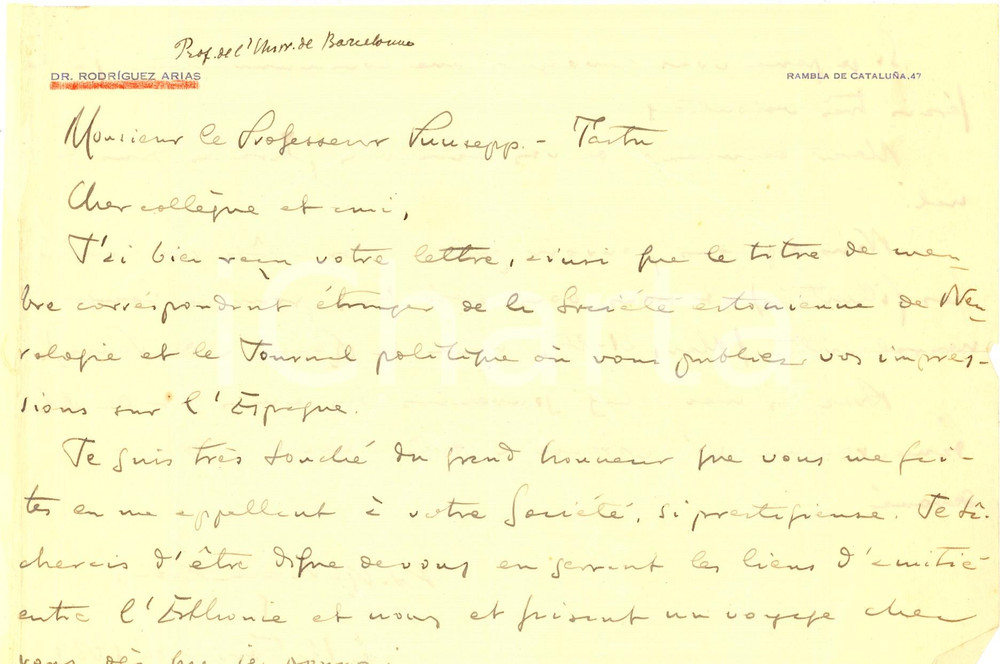 Prof. de l'Univ. de Barcelone
DR. RODRÍGUEZ ARIAS
RAMBLA DE CATALUÑA, 47
Monsieur le Professeur Puusepp. - Tartu
Cher collègue et ami,
J'ai bien reçu votre lettre, ainsi que le titre de mem-
bre correspondant étranger de la Société estonienne de Neu-
rologie et le Journal politique où vous publiez vos impres-
sions sur l'Espagne.
Je suis très touché du grand honneur que vous me fai-
tes en me appellant à votre Société, si prestigieuse. Je tâ-
cherais d'être digne de vous en serrant les liens d'amitié
entre l'Esthonie et nous et faisant un voyage chez
vous dès que je
iCharta